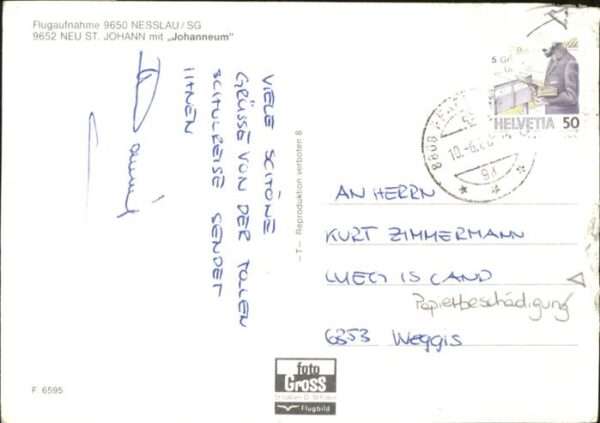 Flugaufnahme 9650 NESSLAU/SG
9652 NEU ST. JOHANN mit „Johanneum"
VIELE SCHÖNE
GRÜSSE VON DER TOLLEN
SCHULREISE SENDET
IHNEN
– T – Reproduktion verboten 8
HELVETIA 50
8808
AN HERRN
KURT ZIMMERMANN
Papierbeschädigung
6353 Weggis
F 6595
foto
Gross
Flugbild